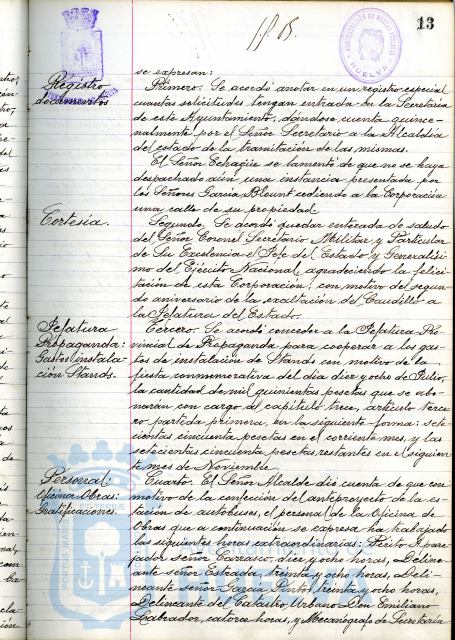 13
ADMINISTRACION DE RENTAS PUBLICAS
HUELVA
se expresan:
Registro
documentos
Primero. Se acordó anotar en un registro especial
cuantas solicitudes tengan entrada en la Secretaría
de este Ayuntamiento, dándose cuenta quince-
nalmente por el Señor Secretario a la Alcaldía
del estado de la tramitación de las mismas.
El Señor Echagüe se lamentó de que no se haya
despachado aún una instancia presentada por
los Señores García Blount cediendo a la Corporación
una calle de su propiedad.
Cortesía.
Segundo. Se acordó quedar enterada de saludo
del Señor Coronel Secretario Militar y Particular
de Su Excelencia el Jefe del Estado y Generalísi-
mo del Ejército Nacional, agradeciendo la felici-
tación de esta Corporación, con motivo del segun-
do aniversario de la exaltación del Caudillo a
la Jefatura del Estado.
Jefatura
Propaganda:
Gastos instala
ción Stands.
Tercero. Se acordó conceder a la Jefatura Pro-
vincial de Propaganda para cooperar a los gas-
tos de instalación de Stands con motivo de la
fiesta conmemorativa del día diez y ocho de Julio,
la cantidad de mil quinientas pesetas que se abo-
narán con cargo al capítulo trece, artículo terce-
ro partida primera, en la siguiente forma: sete-
cientas cincuenta pesetas en el corriente mes, y las
setecientas cincuenta pesetas restantes en el siguien-
te mes de Noviembre.
Personal:
Oficina Obras:
Gratificaciones.
Cuarto. El Señor Alcalde dió cuenta de que con
motivo de la confección del anteproyecto de la es-
tación de autobuses, el personal de la Oficina de
Obras que a continuación se expresa ha trabajado
las siguientes horas extraordinarias: Perito Apare-
jador Señor Carrasco, diez y ocho horas, Deline-
ante señor Estrada, treinta y ocho horas, Deli-
neante señor García Pinto, treinta y ocho horas,
Delineante del Catastro Urbano Don Emiliano
Labrador, catorce horas, y Mecanógrafo de Secretaría